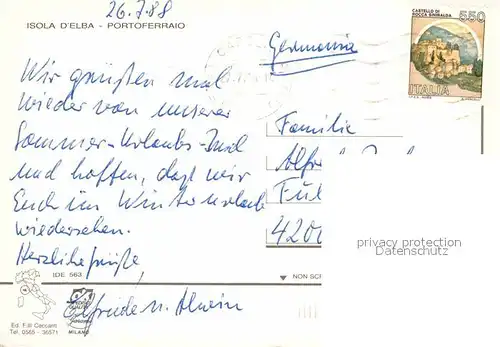 26.7.88
ISOLA D'ELBA - PORTOFERRAIO
CASTELLO DI
ROCCA SINIBALDA
550
ITALIA
Germania
Wir grüßen mal
wieder von unserer
Sommer-Urlaubs-Insel
und hoffen, daß wir
Euch im Winterurlaub
wiedersehen.
Herzliche Grüße
Elfriede u. Alwin
Familie
4200
privacy protection
Datenschutz
IDE 563
NON SCI
Ed. F.lli Ceccanti
Tel. 0565 - 36571
MILANO